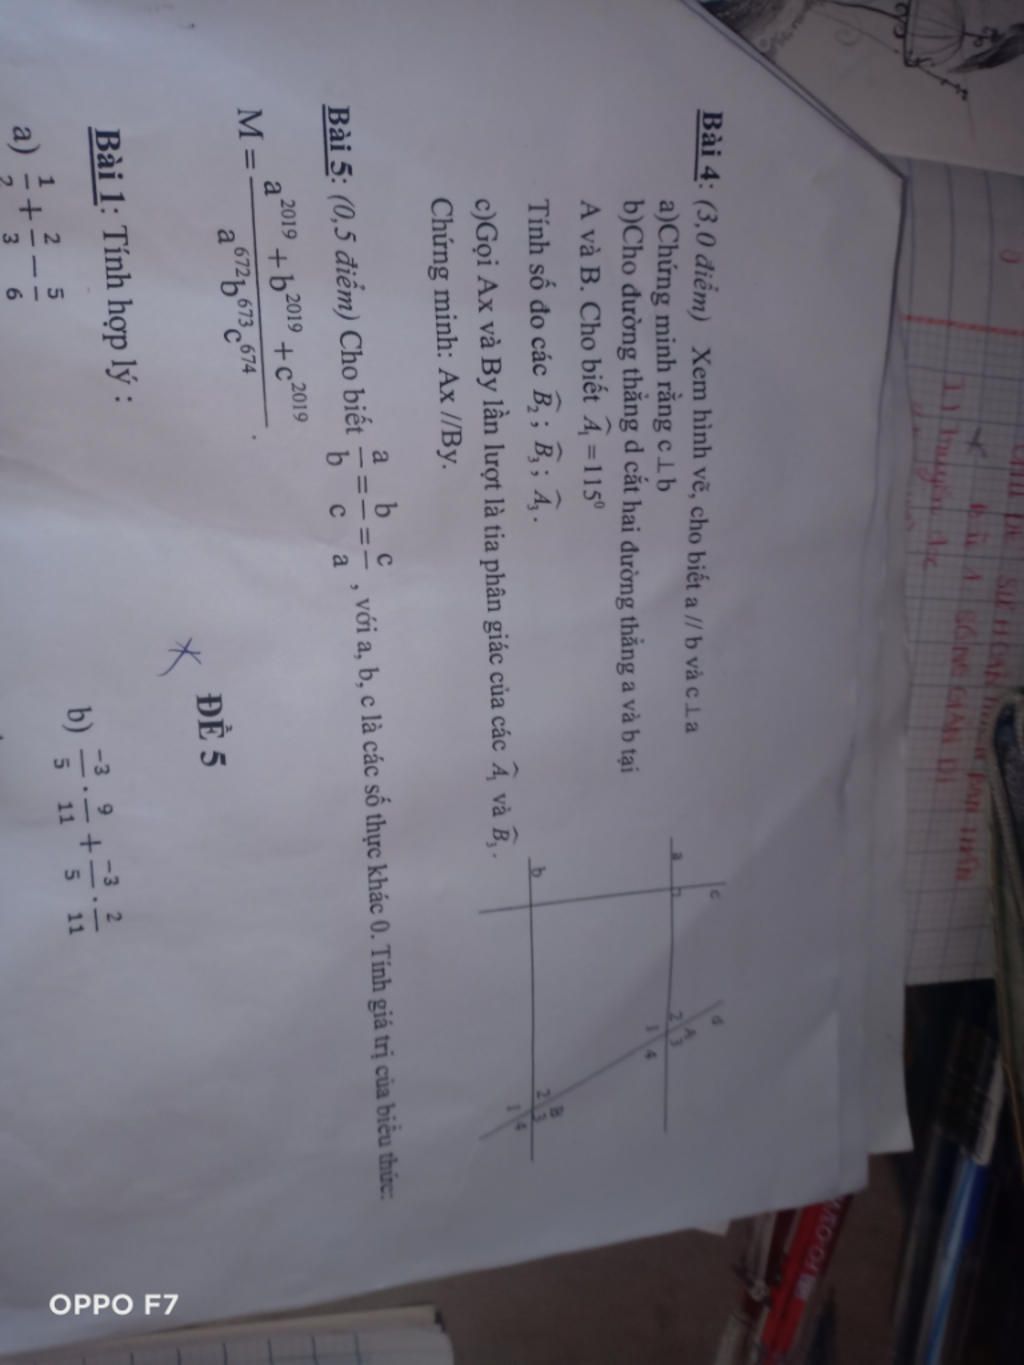 Bài 4: (3,0 điểm) Xem hình vẽ, cho biết a // b và c ⊥ a
a)Chứng minh rằng c ⊥ b
b)Cho đường thẳng d cắt hai đường thẳng a và b tại
A và B. Cho biết Â₁ = 115⁰
Tính số đo các B̂₂ ; B̂₃ ; Â₃ .
c)Gọi Ax và By lần lượt là tia phân giác của các Â₁ và B̂₃ .
Chứng minh: Ax //By.
c
d
a
A
2 3
1 4
b
B
2 3
1 4
Bài 5: (0,5 điểm) Cho biết a/b = b/c = c/a , với a, b, c là các số thực khác 0. Tính giá trị của biểu thức:
M = (a²⁰¹⁹ + b²⁰¹⁹ + c²⁰¹⁹)/(a⁶⁷²b⁶⁷³c⁶⁷⁴) .
ĐỀ 5
Bài 1: Tính hợp lý :
a) 1/2 + 2/3 − 5/6
b) −3/5 · 9/11 + −3/5 · 2/11
OPPO F7